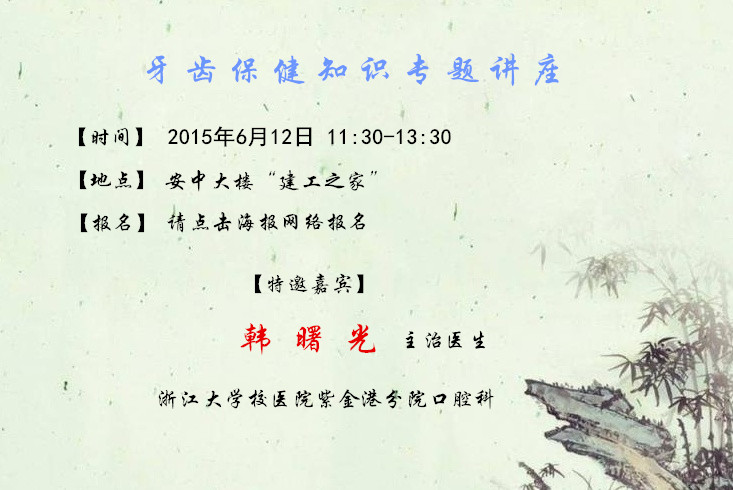 牙齿保健知识专题讲座
【时间】 2015年6月12日 11:30-13:30
【地点】 安中大楼“建工之家”
【报名】 请点击海报网络报名
【特邀嘉宾】
韩曙光 主治医生
浙江大学校医院紫金港分院口腔科